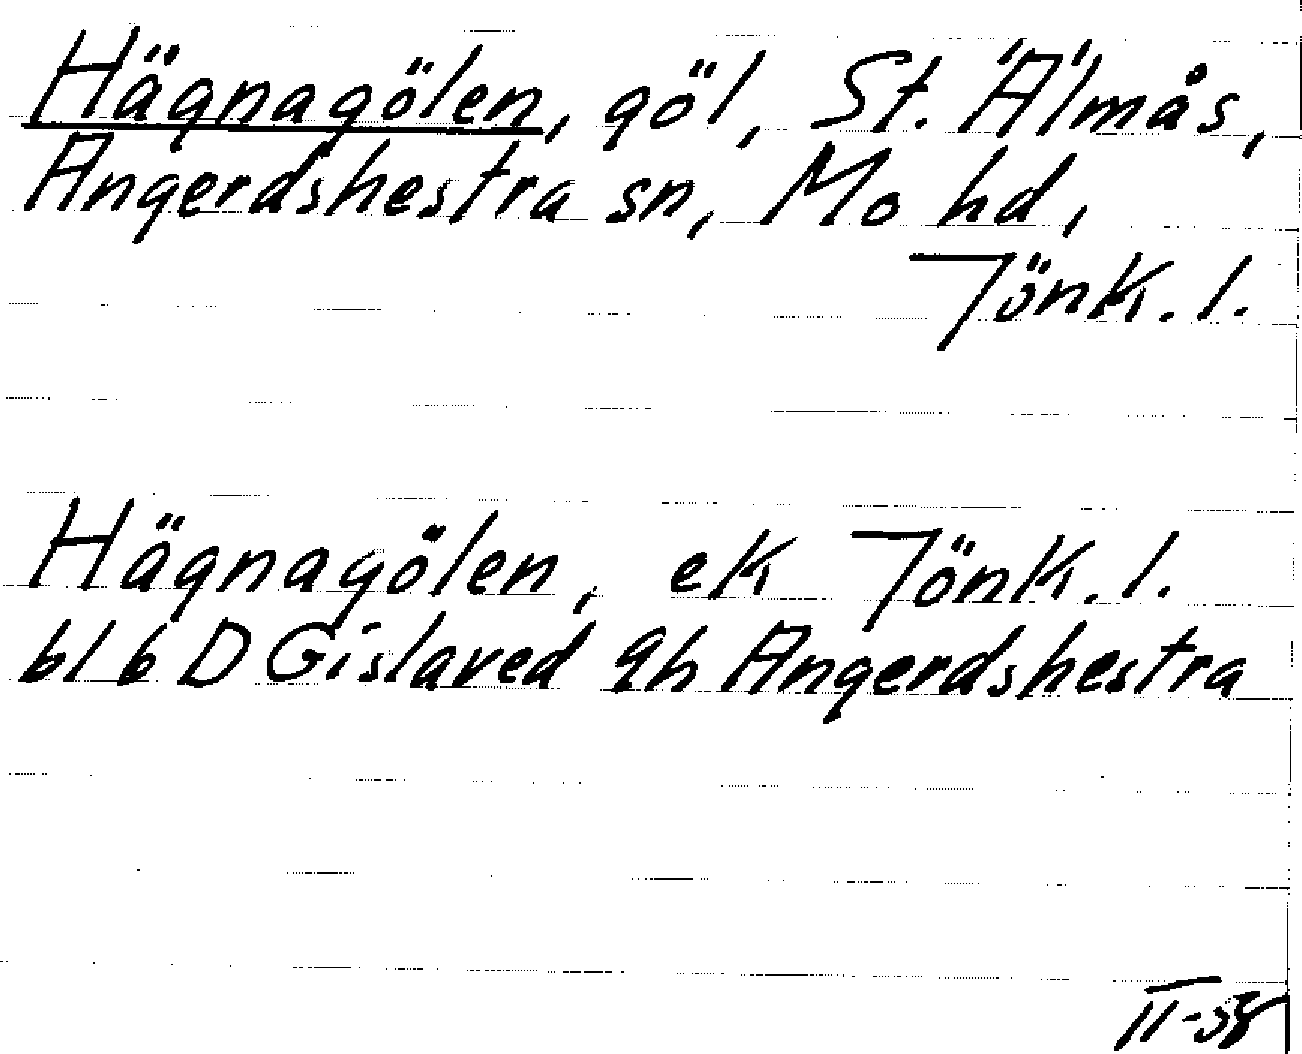 Hägnagölen, göl, St. Älmås,
Angerdshestra sn, Mo hd,
Jönk. l.
Hägnagölen, ek Jönk. l.
bl 6 D Gislaved 9h Angerdshestra
II-58